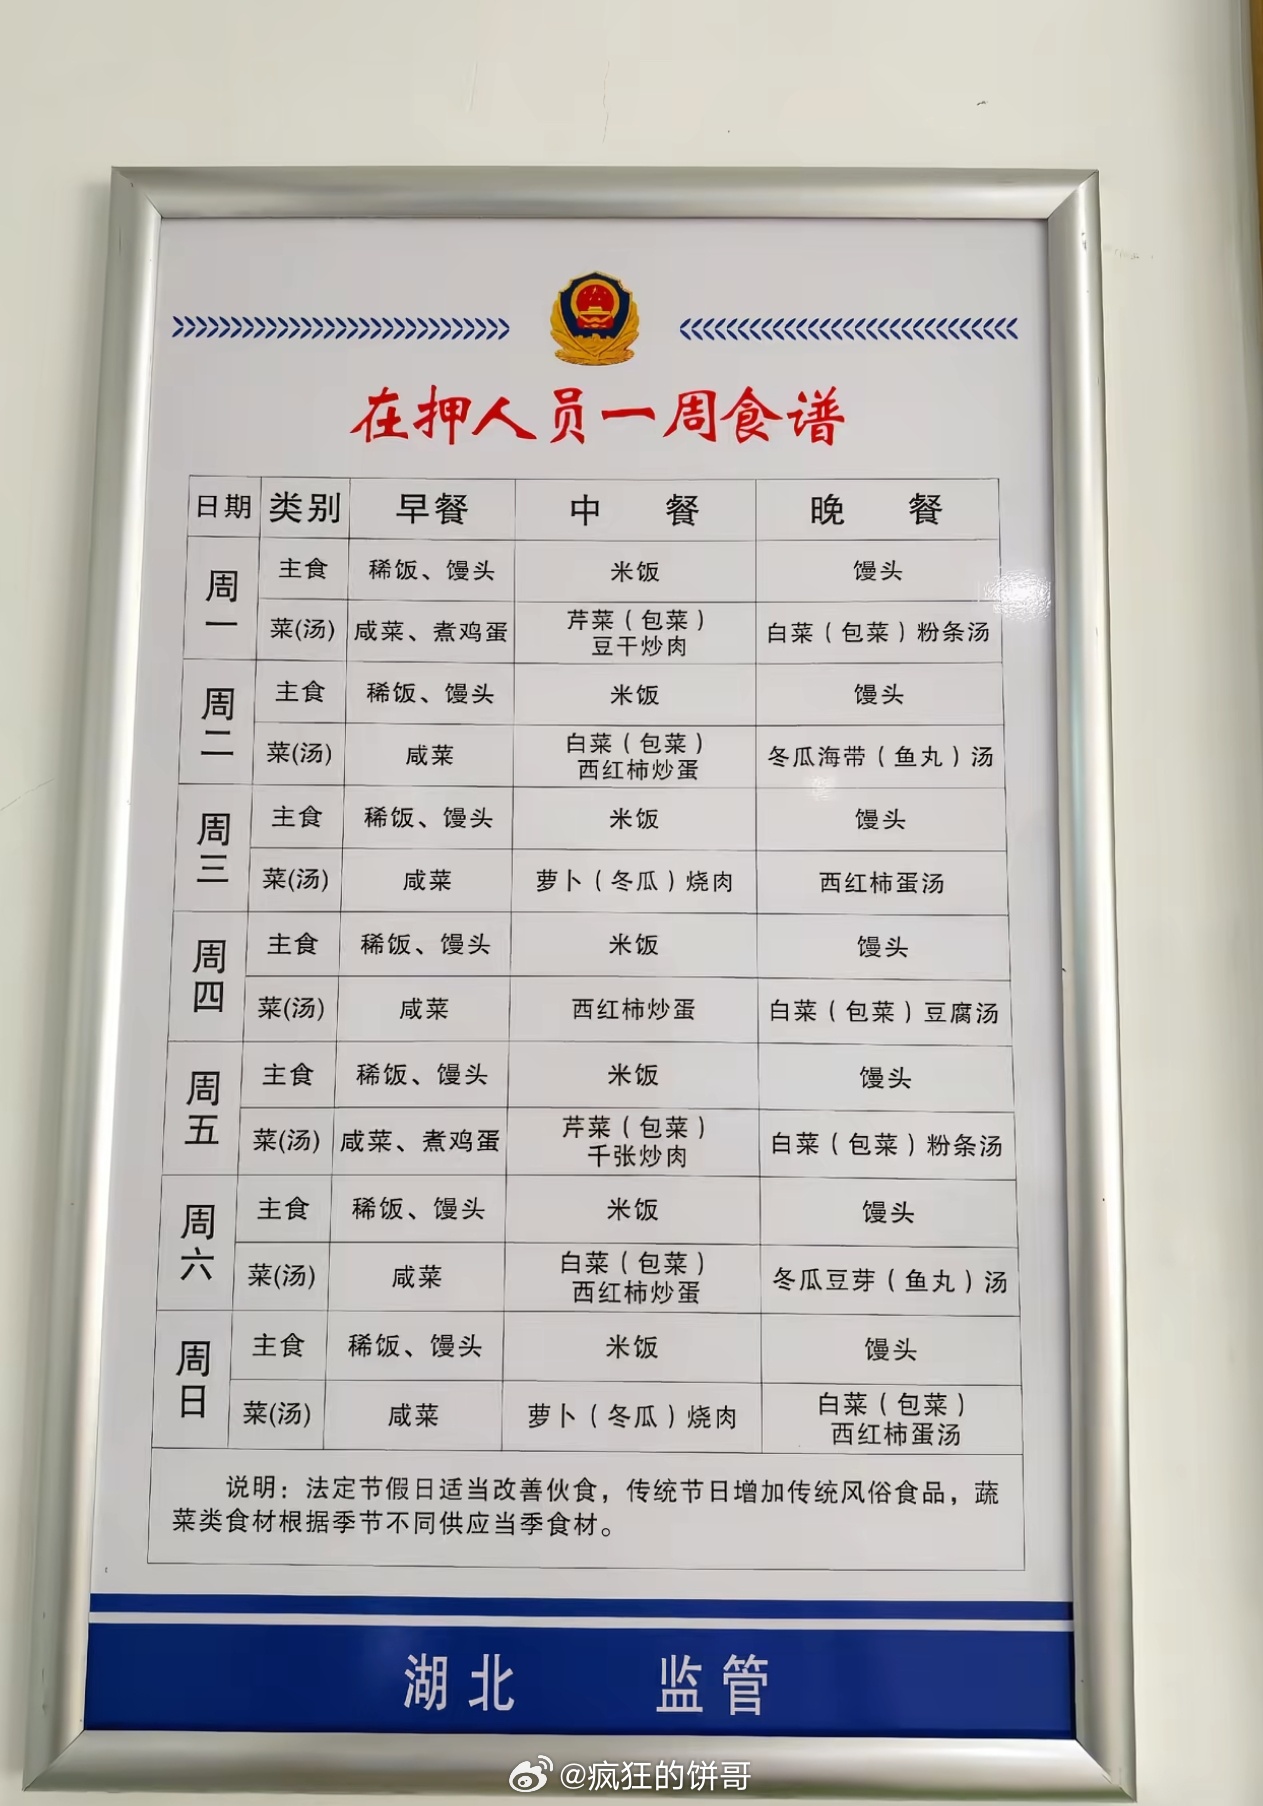 在押人员一周食谱
日期 类别 早餐 中 餐 晚 餐
周一 主食 稀饭、馒头 米饭 馒头
菜(汤) 咸菜、煮鸡蛋 芹菜（包菜）
豆干炒肉 白菜（包菜）粉条汤
周二 主食 稀饭、馒头 米饭 馒头
菜(汤) 咸菜 白菜（包菜）
西红柿炒蛋 冬瓜海带（鱼丸）汤
周三 主食 稀饭、馒头 米饭 馒头
菜(汤) 咸菜 萝卜（冬瓜）烧肉 西红柿蛋汤
周四 主食 稀饭、馒头 米饭 馒头
菜(汤) 咸菜 西红柿炒蛋 白菜（包菜）豆腐汤
周五 主食 稀饭、馒头 米饭 馒头
菜(汤) 咸菜、煮鸡蛋 芹菜（包菜）
千张炒肉 白菜（包菜）粉条汤
周六 主食 稀饭、馒头 米饭 馒头
菜(汤) 咸菜 白菜（包菜）
西红柿炒蛋 冬瓜豆芽（鱼丸）汤
周日 主食 稀饭、馒头 米饭 馒头
菜(汤) 咸菜 萝卜（冬瓜）烧肉 白菜（包菜）
西红柿蛋汤
说明：法定节假日适当改善伙食，传统节日增加传统风俗食品，蔬
菜类食材根据季节不同供应当季食材。
湖北 监管
@疯狂的饼哥